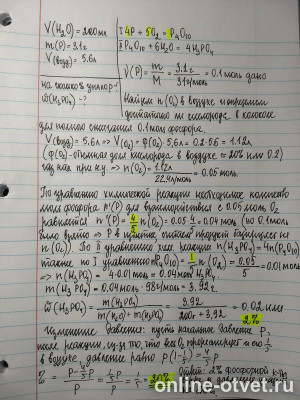 V(H₂O) = 200мл
m(P) = 3.1г
V(возд) = 5.6л
ω(H₃PO₄) - ?
I 4P + 5O₂ = P₄O₁₀
II P₄O₁₀ + 6H₂O = 4H₃PO₄
ν(P) = m/M = 3.1г/31г/моль = 0.1 моль дано
Найдем n(O₂) в воздухе и определим
достаточно ли кислорода в колоколе
для полного сжигания 0.1 моль фосфора.
V(возд) = 5.6л ⇒ V(O₂) = φ(O₂)·5,6л = 0.2·5.6 = 1.12л
(φ(O₂) - объемная доля кислорода в воздухе ≈ 20% или 0.2)
при н.у. ⇒ n(O₂) = 1.12л/22.4л/моль = 0.05 моль.
По уравнению химической реакции необходимое количество
моль фосфора n'(P) для взаимодействия с 0.05 моль O₂
равняется n'(P) = 4/5 n(O₂) = 0.05·4/5 = 0.04 моль (но 0.1 моль
было взято ⇒ P в избытке, считаем продукт
n(O₂)). По II уравнению хим реакции n(H₃PO₄) = 4n(P₄O₁₀)
также по I уравнению n(P₄O₁₀) = 1/5 n(O₂) = 0.05/5 = 0.01 моль
⇒ n(H₃PO₄) = 4·0.01 моль = 0.04 моль H₃PO₄.
m(H₃PO₄) = 0.04 моль·98г/моль = 3.92г.
ω(H₃PO₄) = m(H₃PO₄)/m(H₂O)+m(H₃PO₄) = 3.92/200г+3,92 = 0.02 или 2%
Изменение давления: пусть начальное давление P,
после реакции, из-за того, что все O₂ прореагирует и его 1/5
в воздухе, давление равно P(1-1/5) = 4/5 P
= P-4/5P/P = 1/5P/P = 1/5 = 20%
Ответ: 2% фосфорной к-ты
online-otvet.ru